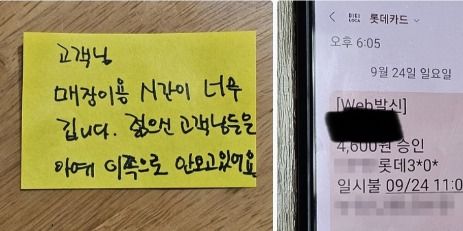 고객님
매장이용 시간이 너무
깁니다. 젊으신 고객님들을
아예 이쪽으로 안오고있어요
DIGI
LOCA
롯데카드
오후 6:05
9월 24일 일요일
[Web발신]
4,600원 승인
롯데3*0*
일시불 09/24 11:0